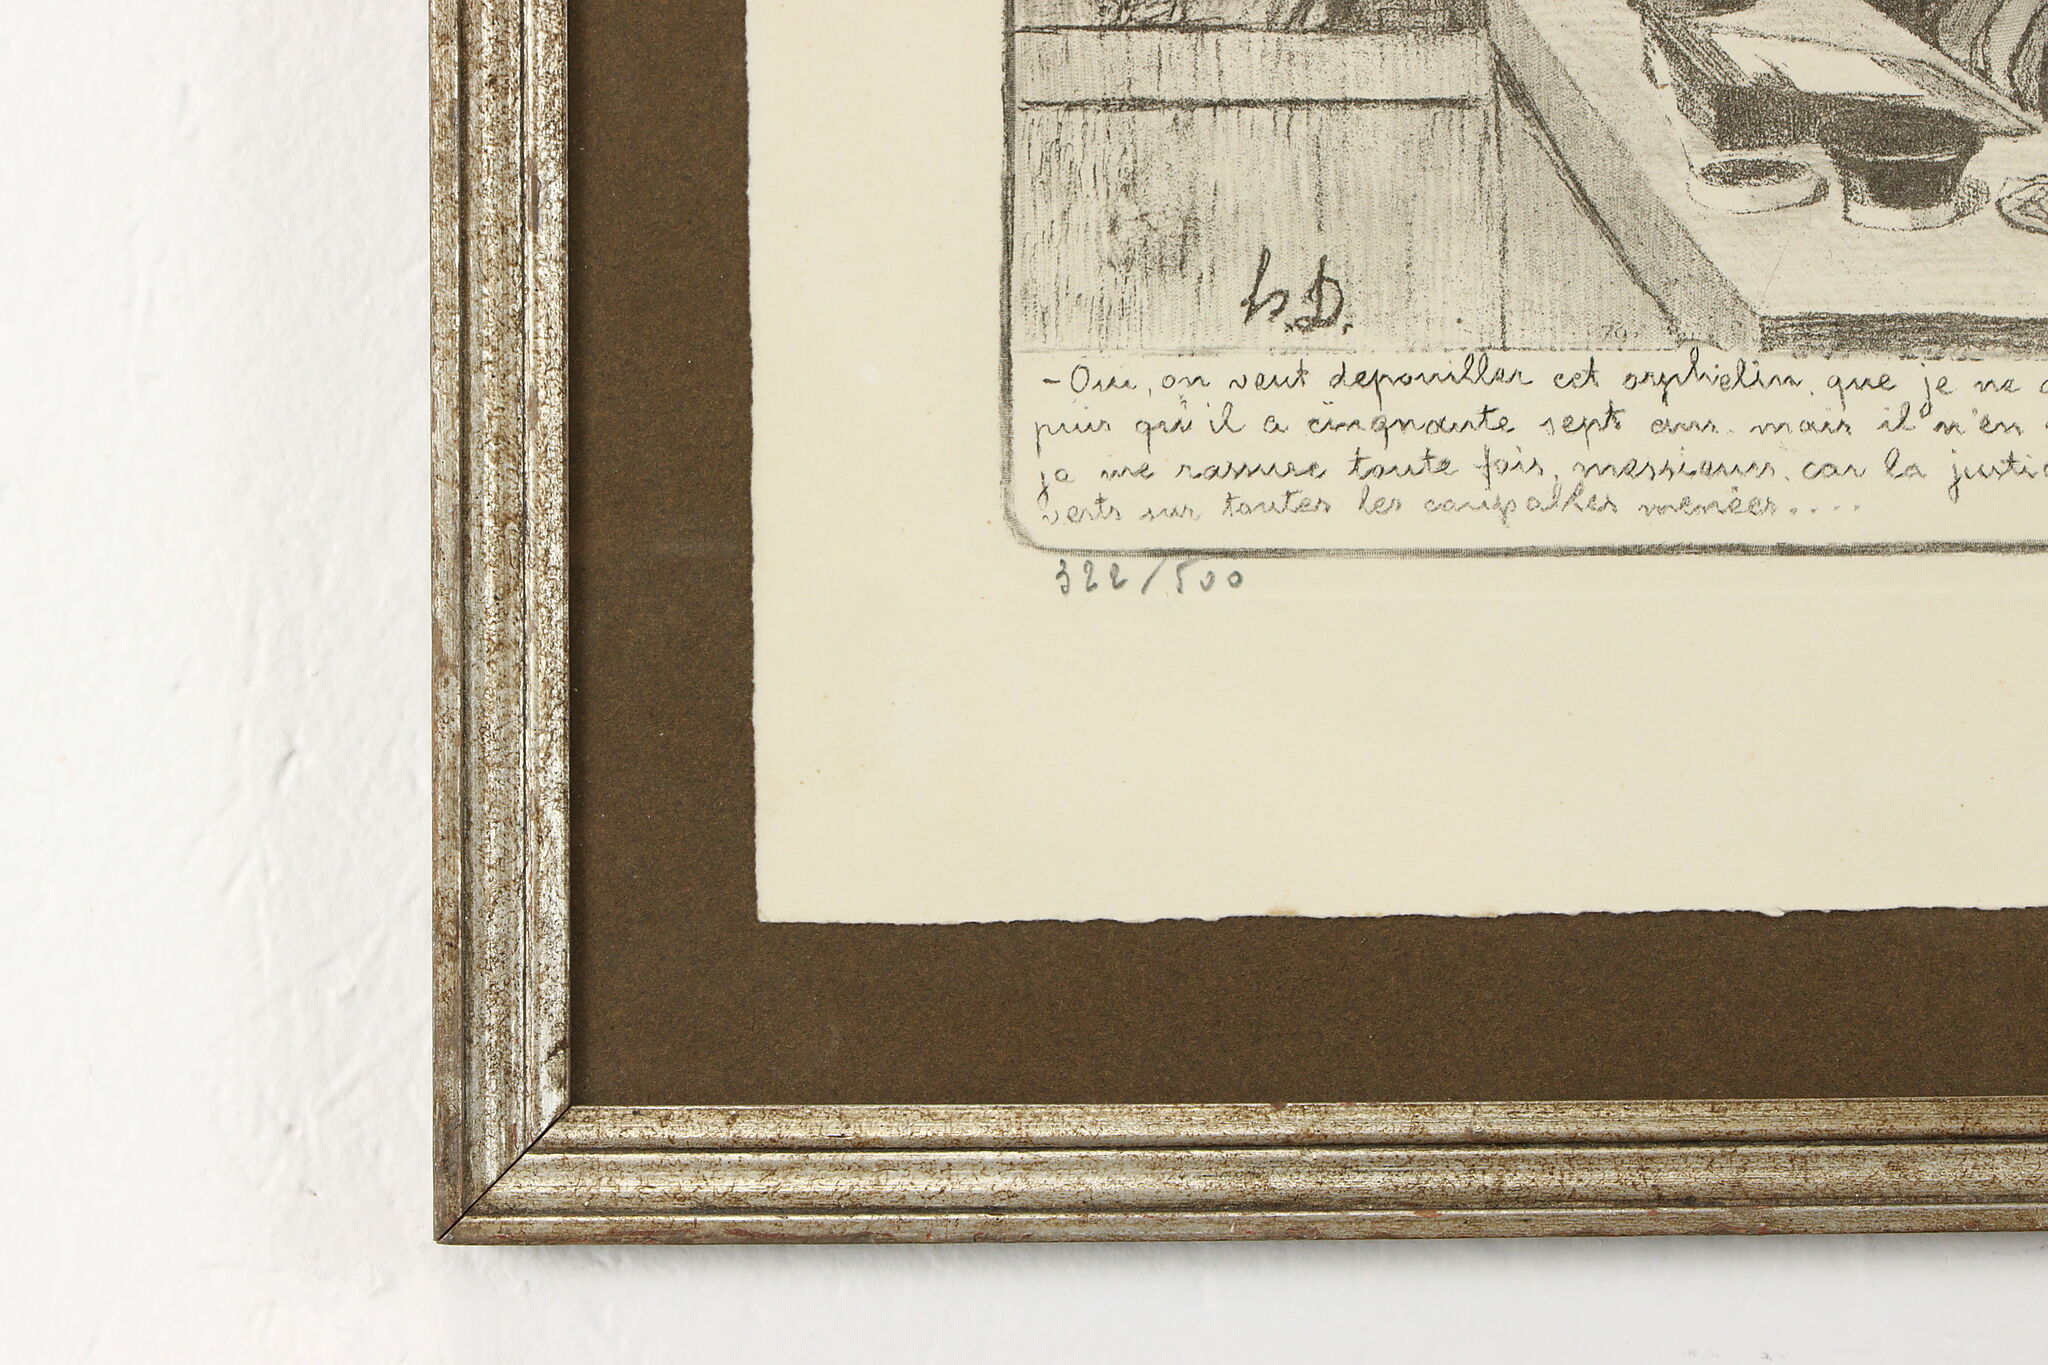 h.D.
- Oui, on veut depouiller cet orphelin, que je ne
puis qu'il a cinquante sept ans. mais il n'en
je me rassure toute fois, messieurs, car la justi
verts sur toutes les coupables menées....
322/500